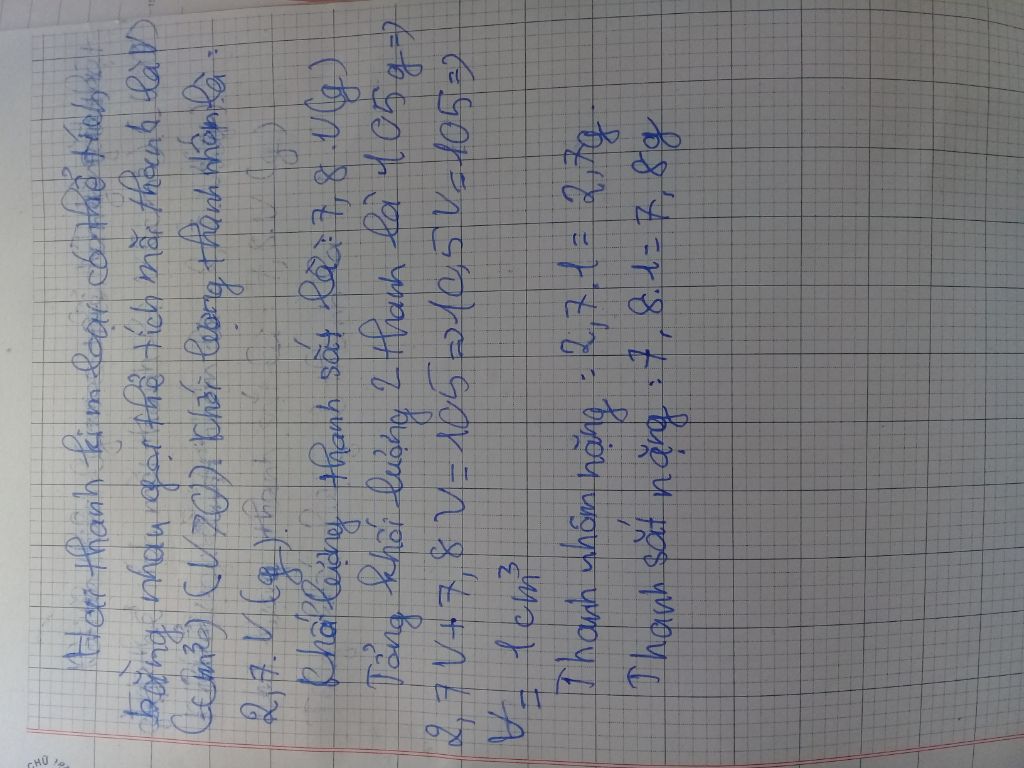 Hai thanh kim loại có thể tích
bằng nhau gọi thể tích mỗi thanh là V
(cm3) (V>0). Khối lượng thanh nhôm là:
2,7.V (g)
Khối lượng thanh sắt là: 7,8.V(g)
Tổng khối lượng 2 thanh là 105g=>
2,7V+7,8V=105=>10,5V=105=>
V= 1cm³
Thanh nhôm nặng: 2,7.1=2,7g.
Thanh sắt nặng: 7,8.1=7,8g
CHỮ